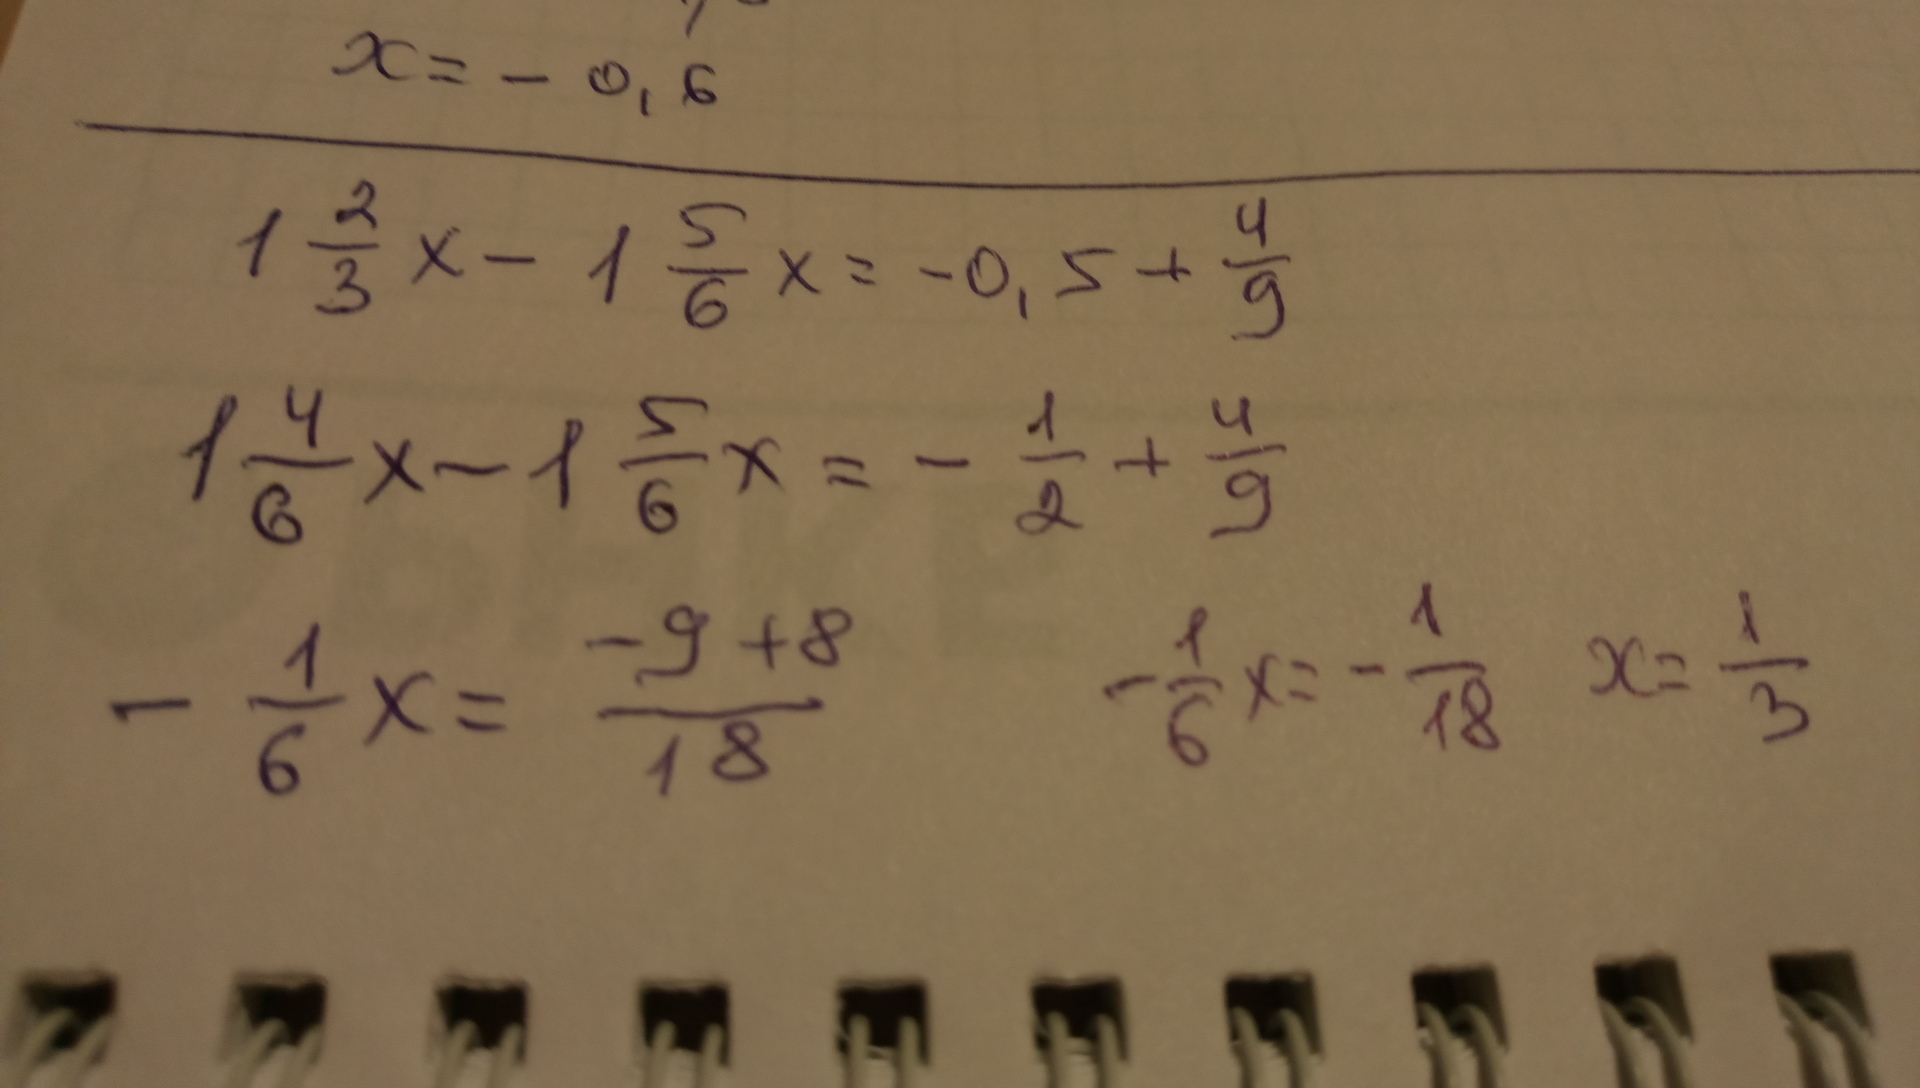 x = - 0,6
1 2/3 x - 1 5/6 x = -0,5 + 4/9
1 4/6 x - 1 5/6 x = - 1/2 + 4/9
- 1/6 x = (-9 + 8)/18    - 1/6 x = - 1/18    x = 1/3